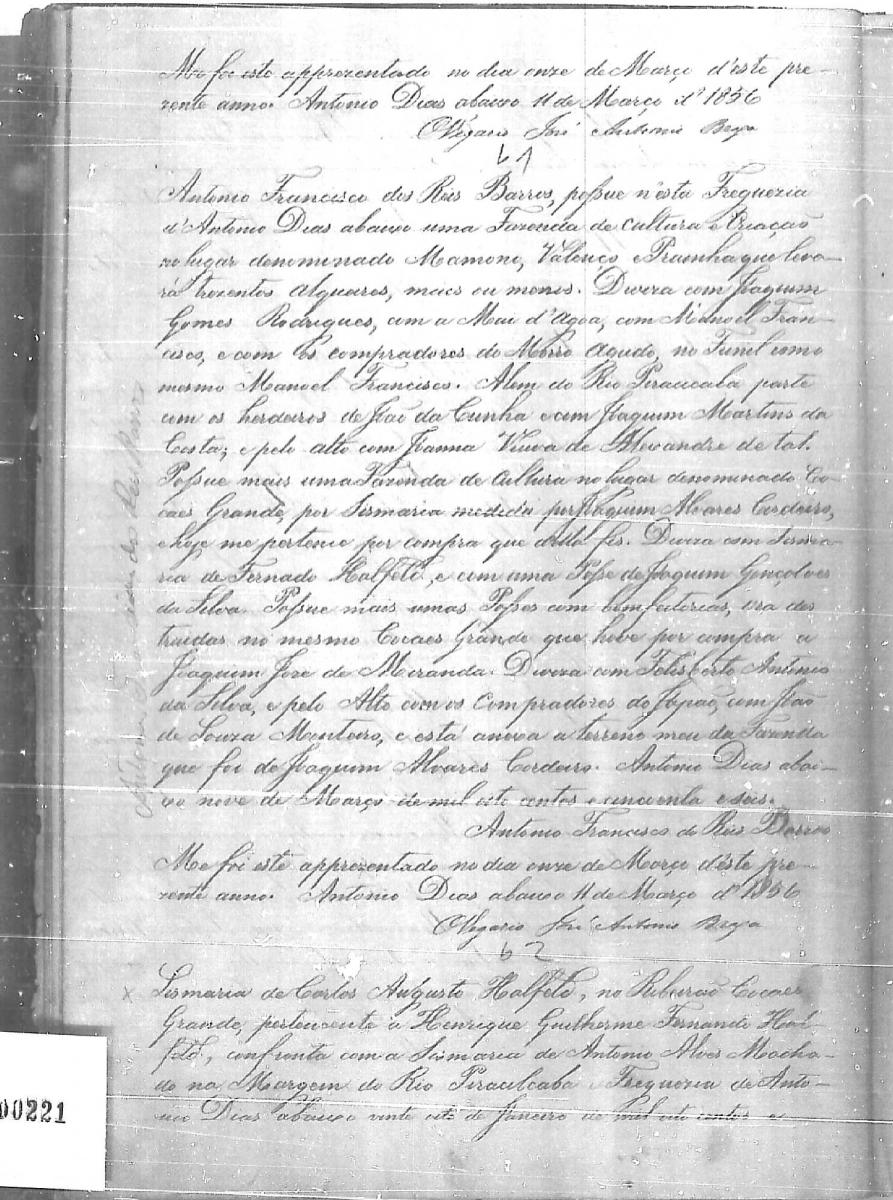 Me foi este apprezentado no dia onze de Março d'este pre-
zente anno. Antonio Dias abaixo 11 de Março d' 1856
O Vegario José Antonio
61
Antonio Francisco dos Reis Barros, poßue n'esta Freguezia
d'Antonio Dias abaixo uma Fazenda de cultura e Criação
no lugar denominado Mamono, e Prainha que leva-
rá trezentos alqueires, mais ou menos. Diviza com Joaquim
Gomes Rodrigues, com a Mai d'agoa, com Manoel Fran-
cisco, e com os compradores do Morro Agudo, no Funil com o
mesmo Manoel Francisco. Alem do Rio Piracicaba parte
com os herdeiros de João da Cunha e com Joaquim Martins da
Costa; e pelo alto com Joanna Viuva de Alexandre de tal.
Poßue mais uma Fazenda de Cultura no lugar denominado Co-
caes Grande, por Sismaria medida por Joaquim Alvares Cordeiro,
e hoje me pertence por compra que fis. Diviza com Sisma-
ria de Fernado Halfeld, e com uma Poße de Joaquim Gonçolves
da Silva. Poßue mais umas Poßes com bemfeitorias,
no mesmo Cocaes Grande que hove por compra a
Joaquim Jose de Miranda. Diviza com Felisberto Antonio
da Silva, e pelo Alto com os Compradores do Japão, com João
de Souza Monteiro, e está anexa a terreno meu da Fazenda
que foi de Joaquim Alvares Cordeiro. Antonio Dias abai-
xo nove de Março de mil oito centos e cincoenta e seis.
Antonio Francisco do Reis Barros
Me foi este apprezentado no dia onze de Março d'este pre-
zente anno. Antonio Dias abaixo 11 de Março d' 1856
O Vegario José Antonio
62
x Sismaria de Carlos Augusto Halfeld, no Ribeirão Cocaes
Grande, pertencente a Henrique Guilherme Fernando Hal-
feld, confronta com a Sismaria de Antonio Alves Macha-
do na Margem do Rio Piracicaba Freguezia de Anto-
nio Dias abaixo vinte oito de Janeiro de mil oito centos e
Antonio dos Reis Barros
00221